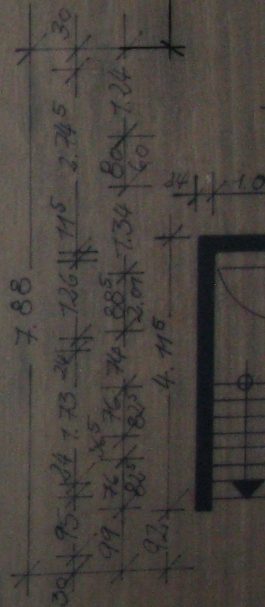 7.88
30 95 24 1.73 24 1.26 11⁵ 2.74⁵ 30
99 76 76 74 88⁵ 1.34 80 1.24
82⁵ 82⁵ 2.01 60
92 4.11⁵
24 1.0